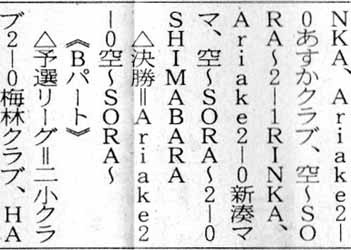 NKA、Ariake2－
0あすかクラブ、空～SO
RA～2－1RINKA、
Ariake2－0新湊マ
マ、空～SORA～2－0
SHIMABARA
△決勝＝Ariake2
－0空～SORA～
《Bパート》
△予選リーグ＝二小クラ
ブ2－0梅林クラブ、HA